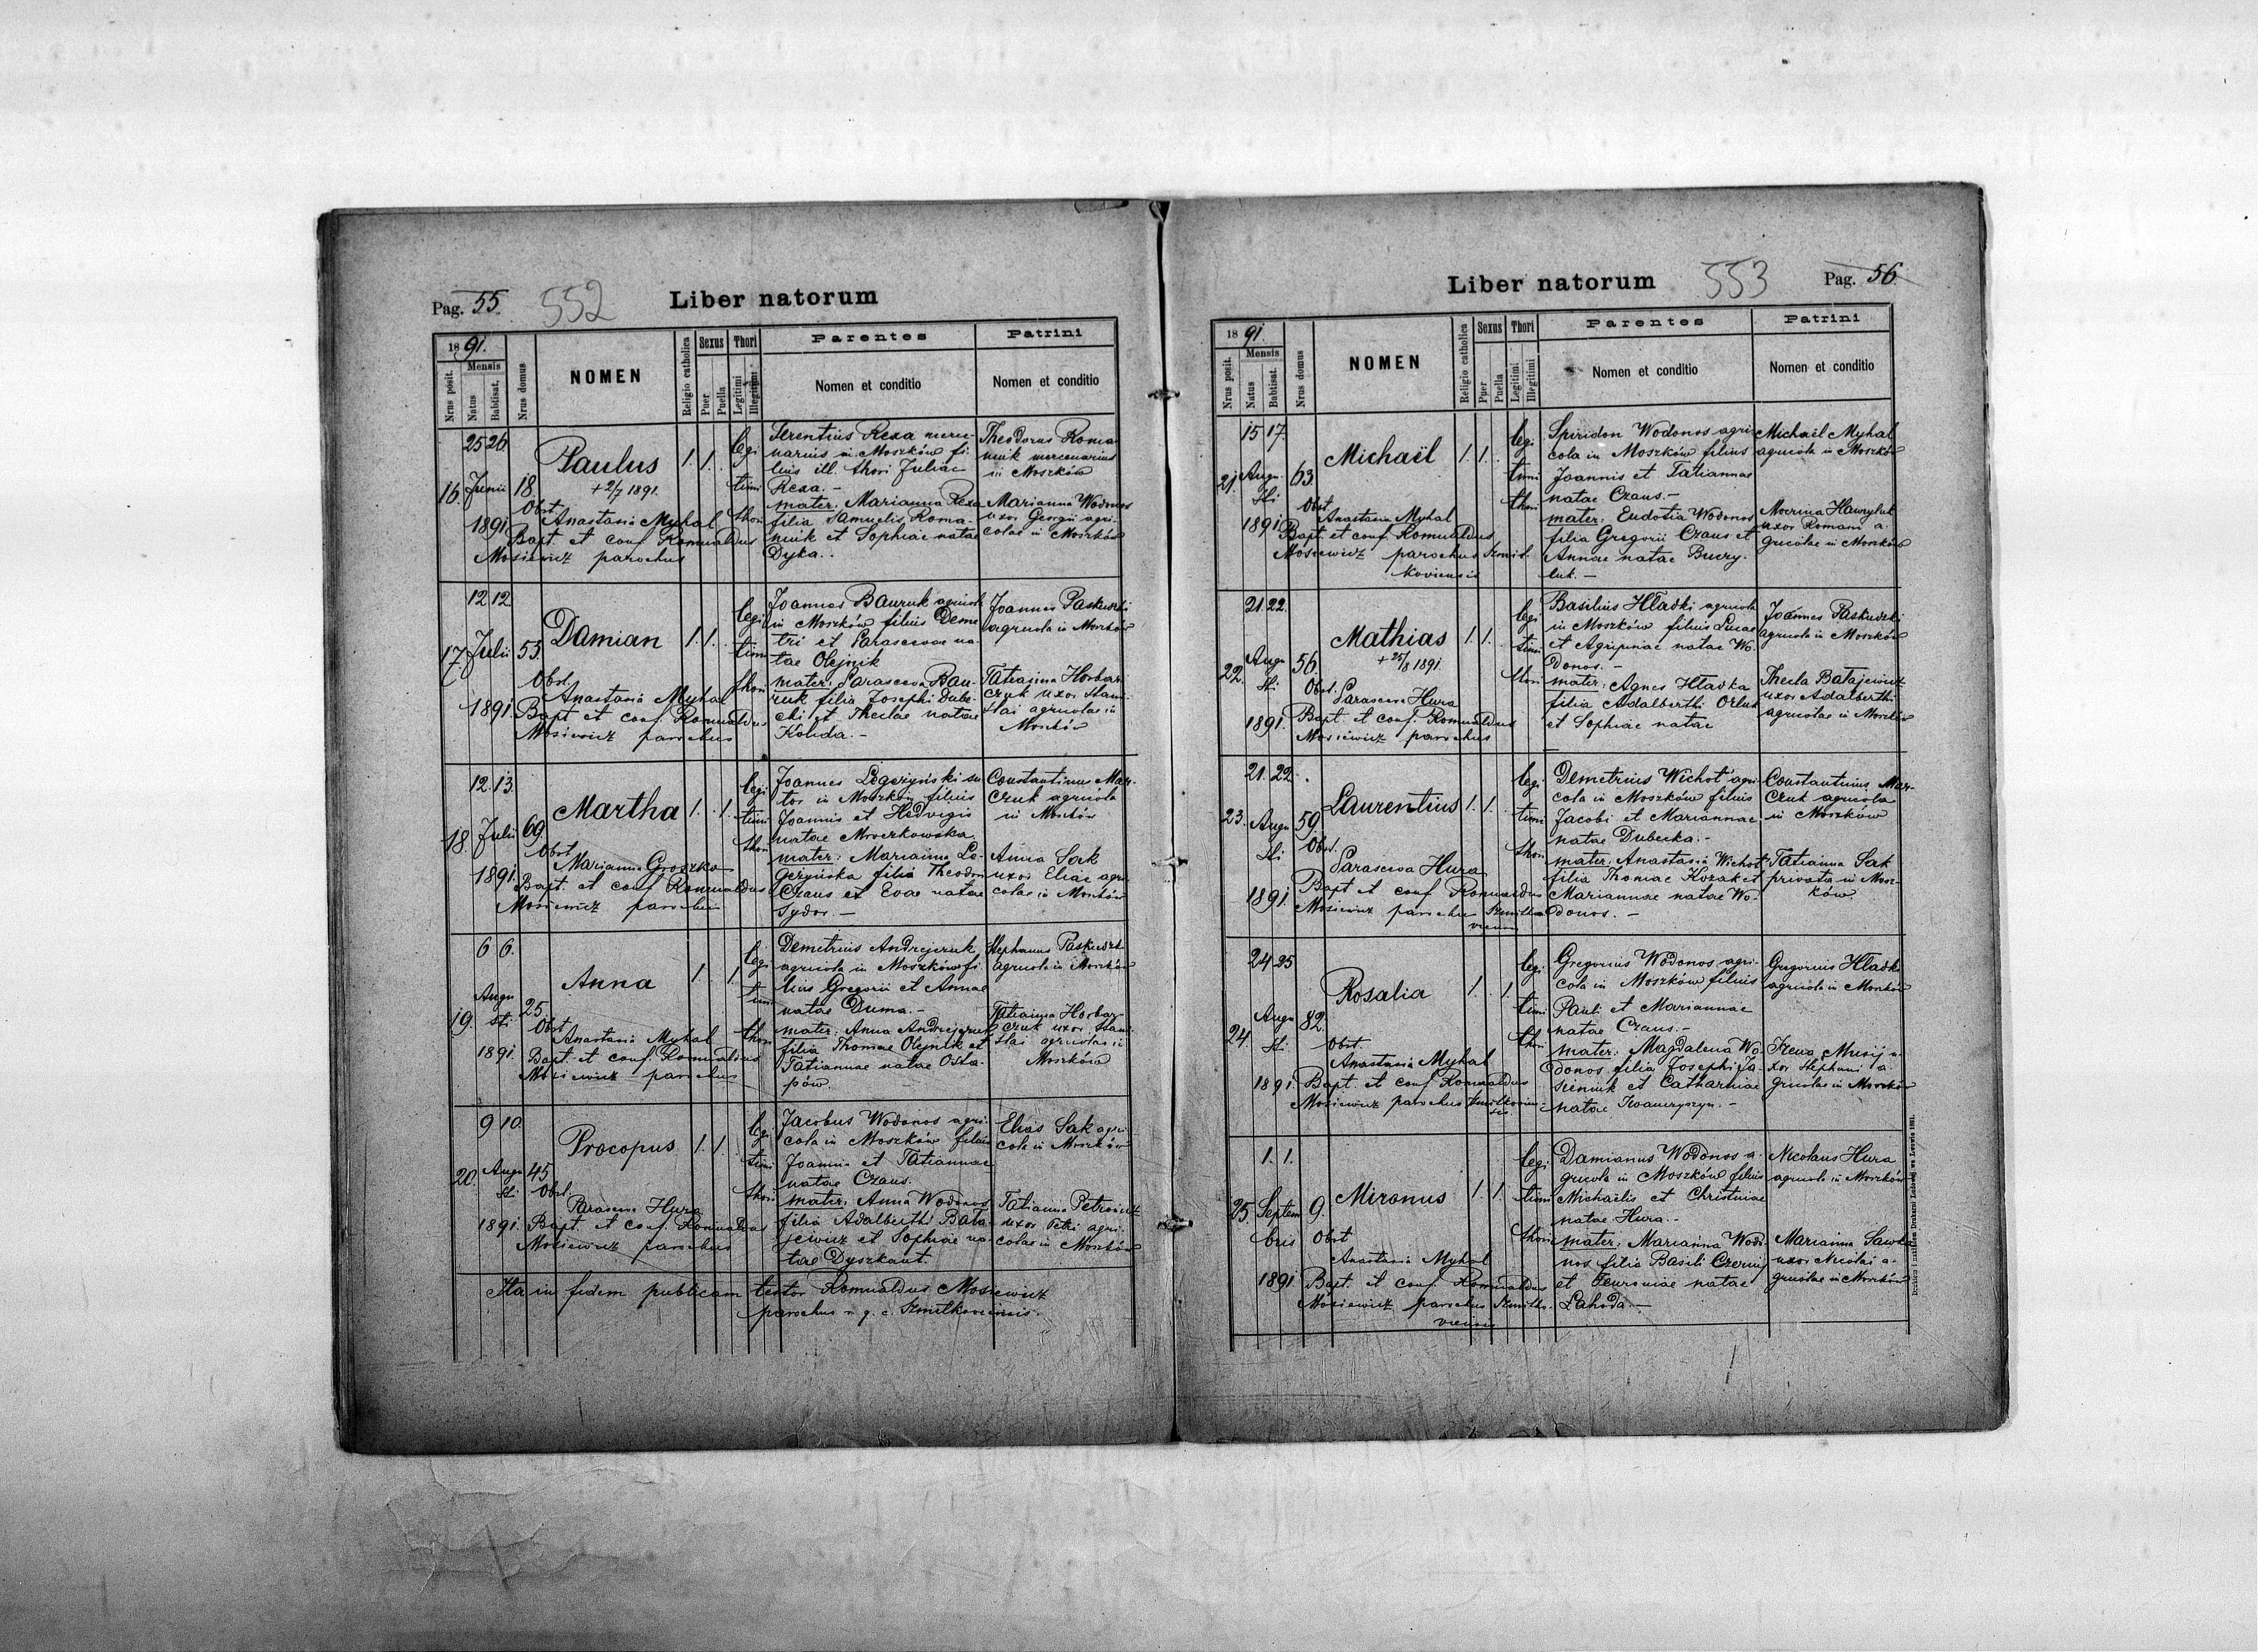 Pag. 55.
552
Liber natorum
1891.
Mensis
Nrus posit.
Natus
Babtisat.
Nrus domus
NOMEN
Religio catholica
Sexus
Puer
Puella
Thori
Legitimi
Illegitimi
Parentes
Nomen et conditio
Patrini
Nomen et conditio
16.
25 26
Junii
1891
18.
Paulus
+ 2/7 1891.
Obst.
Anastasia Myhal
Bapt. et conf. Romualdus
Mosiewicz parochus
1. 1.
legi
timi
thori
Terentius Rexa merce-
narius in Moszków fi-
lius ill. thori Juliae
Rexa. -
mater: Marianna Rexa
filia Samuelis Roma-
niuk et Sophiae natae
Dyka.
Theodorus Roma-
niuk mercenarius
in Moszków
Marianna Wodonos
uxor Georgii agri-
colae in Moszków
17.
12 12
Julii
1891
53.
Damian
Obst.
Anastasia Myhal
Bapt. et conf. Romualdus
Mosiewicz parochus
1. 1.
legi
timi
thori
Joannes Bauruk agricola
in Moszków filius Deme
tri et Parascevae na-
tae Olejnik
mater: Parasceva Bau-
ruk filia Josephi Dube-
cki et Theclae natae
Kohda. -
Joannes Paskuszki
agricola in Moszków
Tatianna Horbar-
czuk uxor Stani-
slai agricolae in
Moszków
18.
12. 13.
Julii
1891.
69.
Martha
Obst.
Marianna Groszko
Bapt. et conf. Romualdus
Mosiewicz parochus
1. 1.
legi
timi
thori
Joannes Legezyński su-
tor in Moszków filius
Joannis et Hedvigis
natae Mroczkowska
mater: Marianna Le-
gezyńska filia Theodori
Czaus et Evae natae
Sydor. -
Constantinus Mar-
czuk agricola
in Moszków
Anna Sak
uxor Eliae agri-
colae in Moszków
19.
6 6.
Augu
sti
1891.
25.
Anna
Obst.
Anastasia Myhal
Bapt. et conf. Romualdus
Mosiewicz parochus
1. 1.
legi
timi
thori
Demetrius Andrejczuk
agricola in Moszków fi-
lius Gregorii et Annae
natae Duma. -
mater: Anna Andrejczuk
filia Thomae Olejnik et
Tatiannae natae Osta-
pów. -
Stephanus Paskuszki
agricola in Moszków
Tatianna Horbar-
czuk uxor Stani-
slai agricolae in
Moszków
20.
9 10.
Augu
sti
1891.
45.
Procopus
Obst.
Parasceva Hura
Bapt. et conf. Romualdus
Mosiewicz parochus
1. 1.
legi
timi
thori
Jacobus Wodonos agri-
cola in Moszków filius
Joannis et Tatiannae
natae Czaus.
mater: Anna Wodonos
filia Adalberthi Bała-
jewicz et Sophiae na-
tae Dyszkant.
Elias Sak agri-
cola in Moszków
Tatianna Petrowicz
uxor Petri agri-
colae in Moszków
Ita in fidem publicam testor Romualdus Mosiewicz
parochus r. g. c. Szmitkoviensis.
Liber natorum
553
Pag. 56
1891.
Mensis
Nrus posit.
Natus
Babtisat.
Nrus domus
NOMEN
Religio catholica
Sexus
Puer
Puella
Thori
Legitimi
Illegitimi
Parentes
Nomen et conditio
Patrini
Nomen et conditio
21.
15 17.
Augu
sti
1891
63.
Michaël
Obst
Anastasia Myhal
Bapt. et conf. Romualdus
Mosiewicz parochus Szmit-
koviensis
1. 1.
legi
timi
thori
Spiridon Wodonos agri-
cola in Moszków filius
Joannis et Tatiannae
natae Czaus. -
mater: Eudotia Wodonos
filia Gregorii Czaus et
Annae natae Bucry-
luk. -
Michaël Myhal
agricola in Moszków
Mocrina Hawryluk
uxor Romani a-
gricolae in Moszków
22.
21. 22.
Augu
sti
1891.
56.
Mathias
+ 25/8 1891.
Obst.
Parasceva Hura
Bapt. et conf. Romualdus
Mosiewicz parochus
1. 1.
legi
timi
thori
Basilius Hładki agricola
in Moszków filius Lucae
et Agripinae natae Wo-
donos. -
mater: Agnes Hładka
filia Adalberthi Orluk
et Sophiae natae
Joannes Paskuszki
agricola in Moszków
Thecla Bałajewicz
uxor Adalberthi
agricolae in Moszków
23.
21. 22.
Augu
sti
1891.
59.
Laurentius
Obst.
Parasceva Hura
Bapt. et conf. Romualdus
Mosiewicz parochus Szmitko-
viensis
1. 1.
legi
timi
thori
Demetrius Wichot agri-
cola in Moszków filius
Jacobi et Mariannae
natae Dubecka. -
mater: Anastasia Wichot
filia Thomae Kozak et
Mariannae natae Wo-
donos. -
Constantinus Mar-
czuk agricola
in Moszków
Tatianna Sak
privata in Mosz-
ków.
24.
24 25
Augu
sti
1891.
82.
Rosalia
Obst.
Anastasia Myhal
Bapt. et conf. Romualdus
Mosiewicz parochus Szmitkovien-
sis
1. 1.
legi
timi
thori
Gregorius Wodonos agri-
cola in Moszków filius
Pauli et Mariannae
natae Czaus. -
mater: Magdalena Wo-
donos filia Josephi Ja-
sieniuk et Catharinae
natae Iwanczyszyn. -
Gregorius Hładki
agricola in Moszków
Irena Musij u-
xor Stephani a-
gricolae in Moszków
25.
1. 1.
Septem
bris
1891
9.
Mironus
Obst
Anastasia Myhal
Bapt. et conf. Romualdus
Mosiewicz parochus Szmitko-
viensis
1. 1.
legi
timi
thori
Damianus Wodonos a-
gricola in Moszków filius
Michaelis et Christinae
natae Hura. -
mater: Marianna Wodo-
nos filia Basili Czernij
et Feuroniae natae
Lahoda. -
Nicolaus Hura
agricola in Moszków
Marianna Sawka
uxor Nicolai a-
gricolae in Moszków